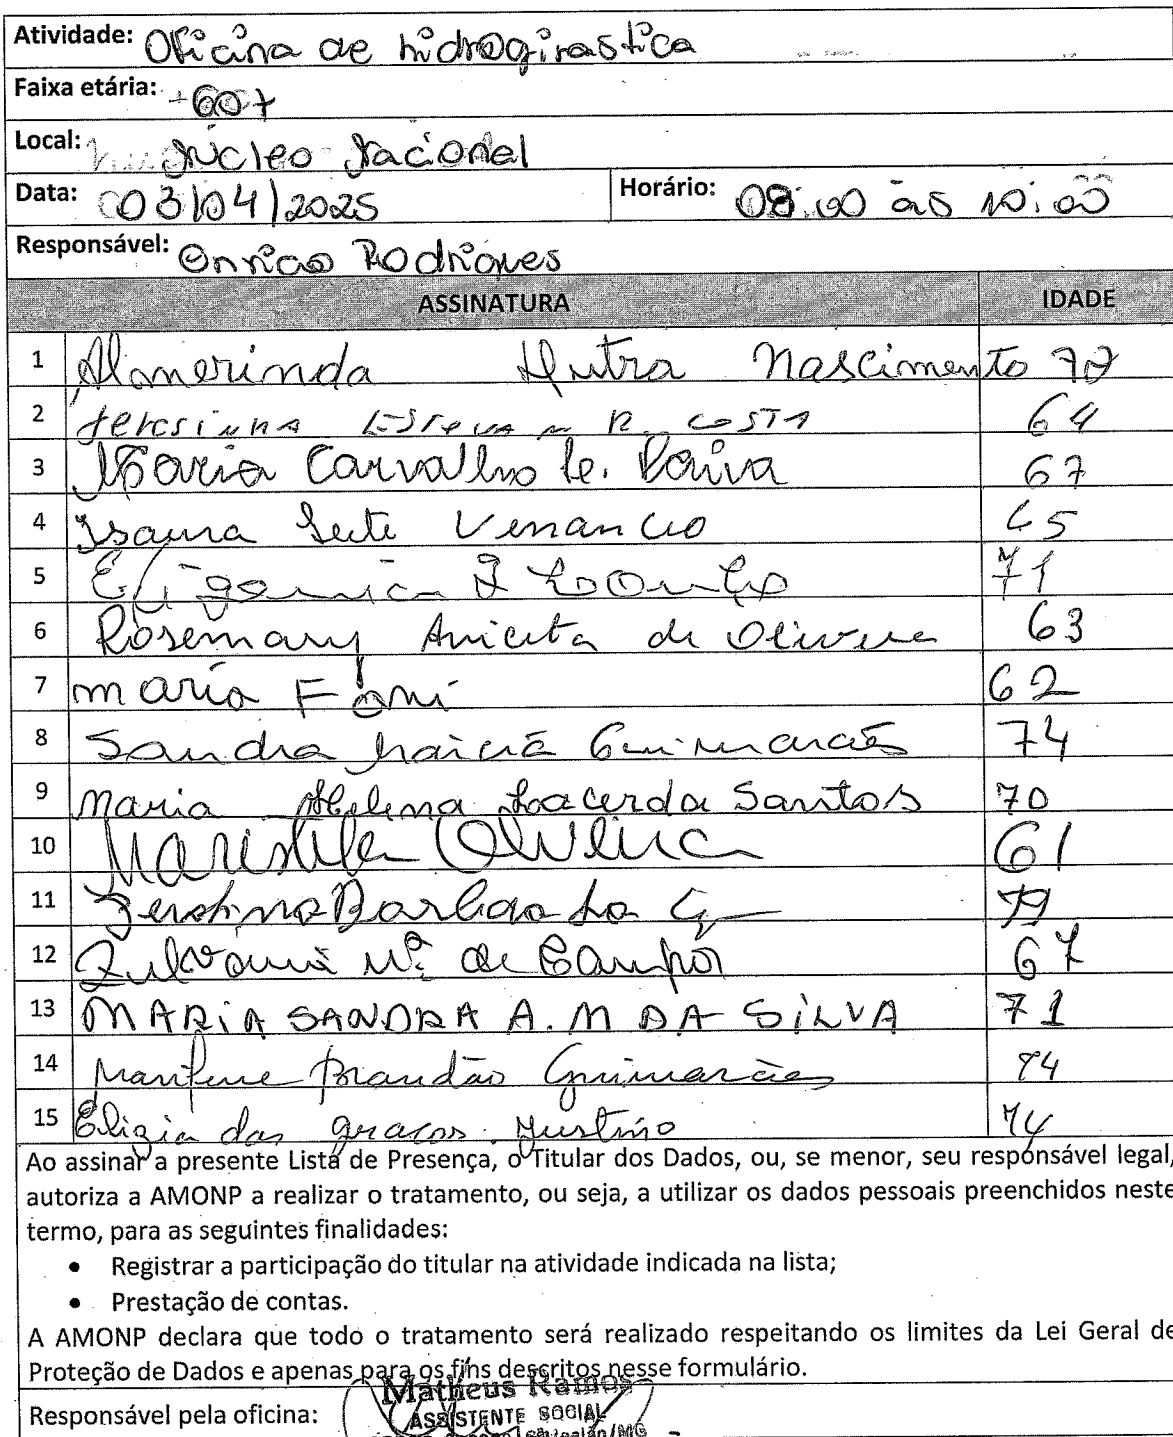 Atividade: Oficina de hidroginastica
Faixa etária: +60+
Local: Núcleo Nacional
Data: 03/04/2025 Horário: 08:00 às 10:00
Responsável: Rodrigues
ASSINATURA IDADE
1 Almerinda Dutra Nascimento
2 Teresinha R. COSTA 64
3 Maria Carvalho Le. Paiva 67
4 Isaura Leite Venancio 65
5 71
6 Rosemary Aniceta de Oliveira 63
7 maria Fani 62
8 Sandra Guimarães 74
9 Maria Helena Lacerda Santos 70
10 Maristela Oliveira 61
11 Barbosa
12 Mª de Campos 67
13 MARIA SANDRA A. M DA SILVA 71
14 Brandão Guimarães 74
15 Elizia das graças Justino 74
Ao assinar a presente Lista de Presença, o Titular dos Dados, ou, se menor, seu responsável legal,
autoriza a AMONP a realizar o tratamento, ou seja, a utilizar os dados pessoais preenchidos neste
termo, para as seguintes finalidades:
• Registrar a participação do titular na atividade indicada na lista;
• Prestação de contas.
A AMONP declara que todo o tratamento será realizado respeitando os limites da Lei Geral de
Proteção de Dados e apenas para os fins descritos nesse formulário.
Matheus Ramos
Responsável pela oficina: ASSISTENTE SOCIAL